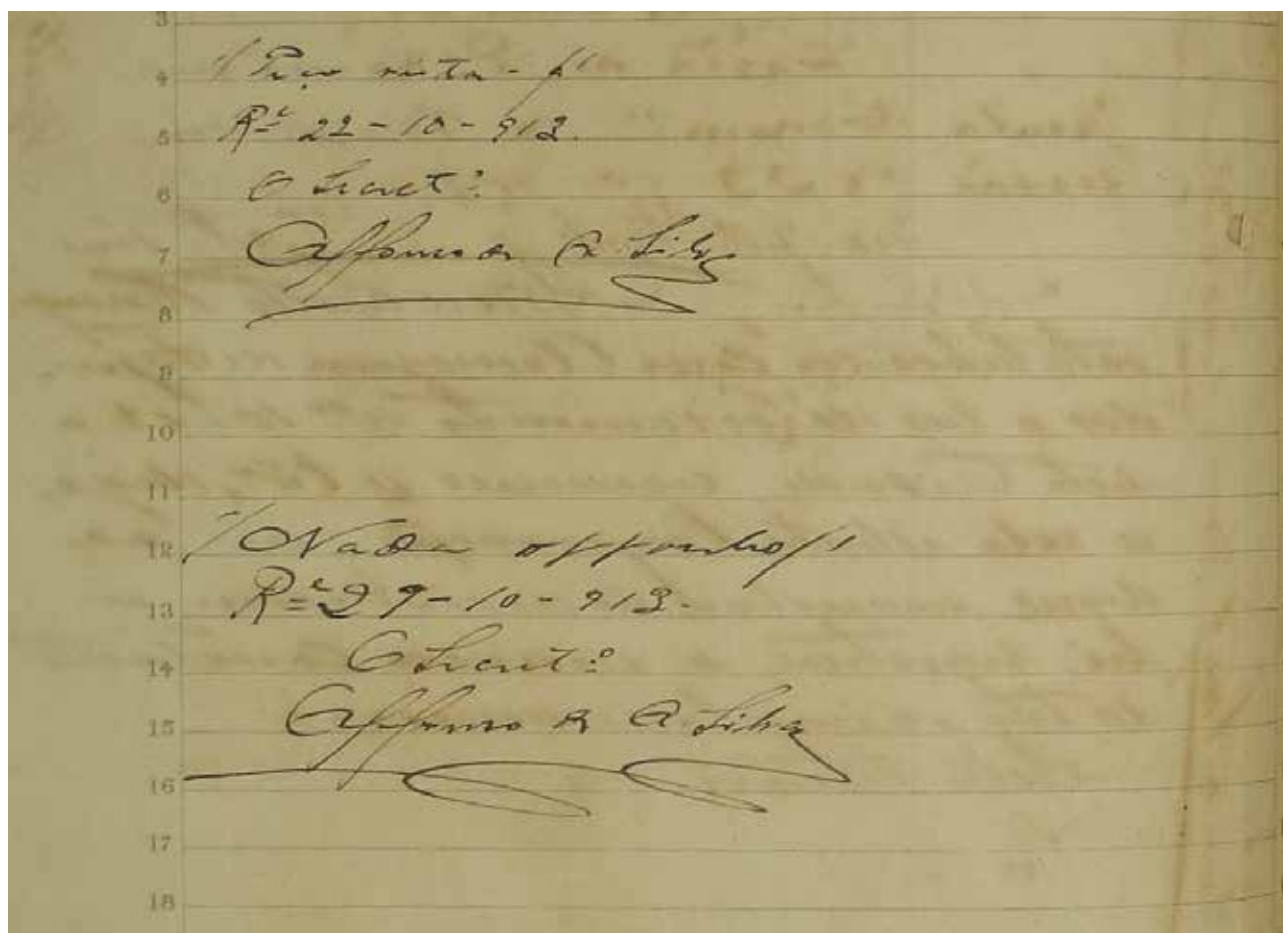 3
4 "Peço vista-"
5 R.e 22-10-913.
6 O Secret.º
7 Affonso de A Silva
8
9
10
11
12 "Nada opponho"
13 R.e 29-10-913.
14 O Secret.º
15 Affonso de A Silva
16
17
18